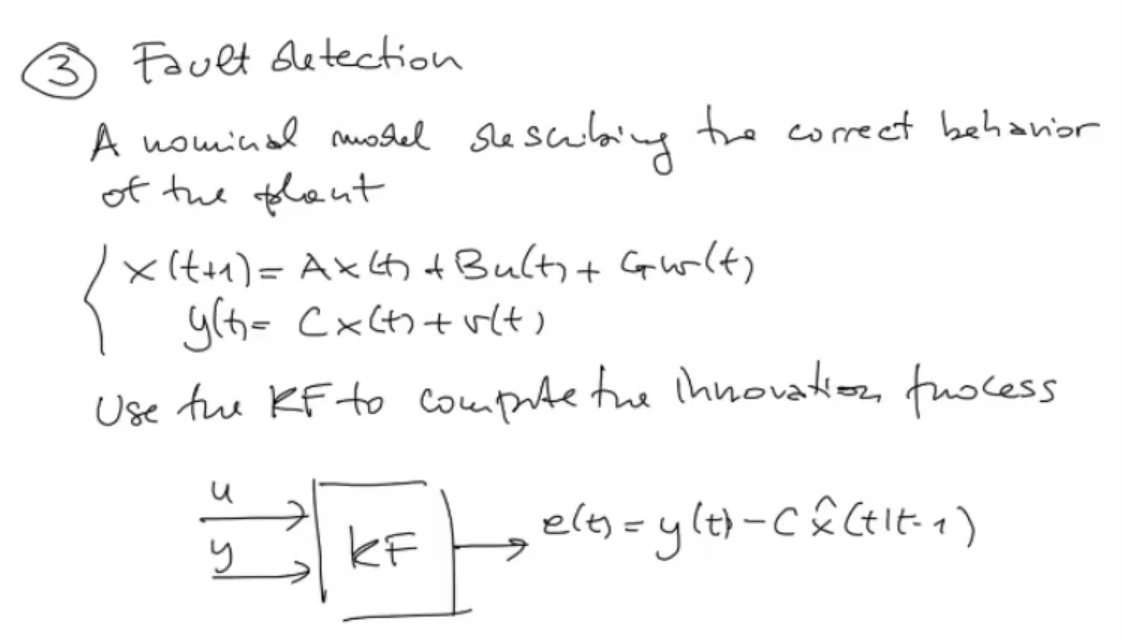 ③ Fault detection
A nominal model describing the correct behavior
of the plant
x(t+1) = Ax(t) + Bu(t) + Gw(t)
y(t) = Cx(t) + v(t)
Use the KF to compute the innovation process
u
y
KF
e(t) = y(t) - C x̂(t|t-1)